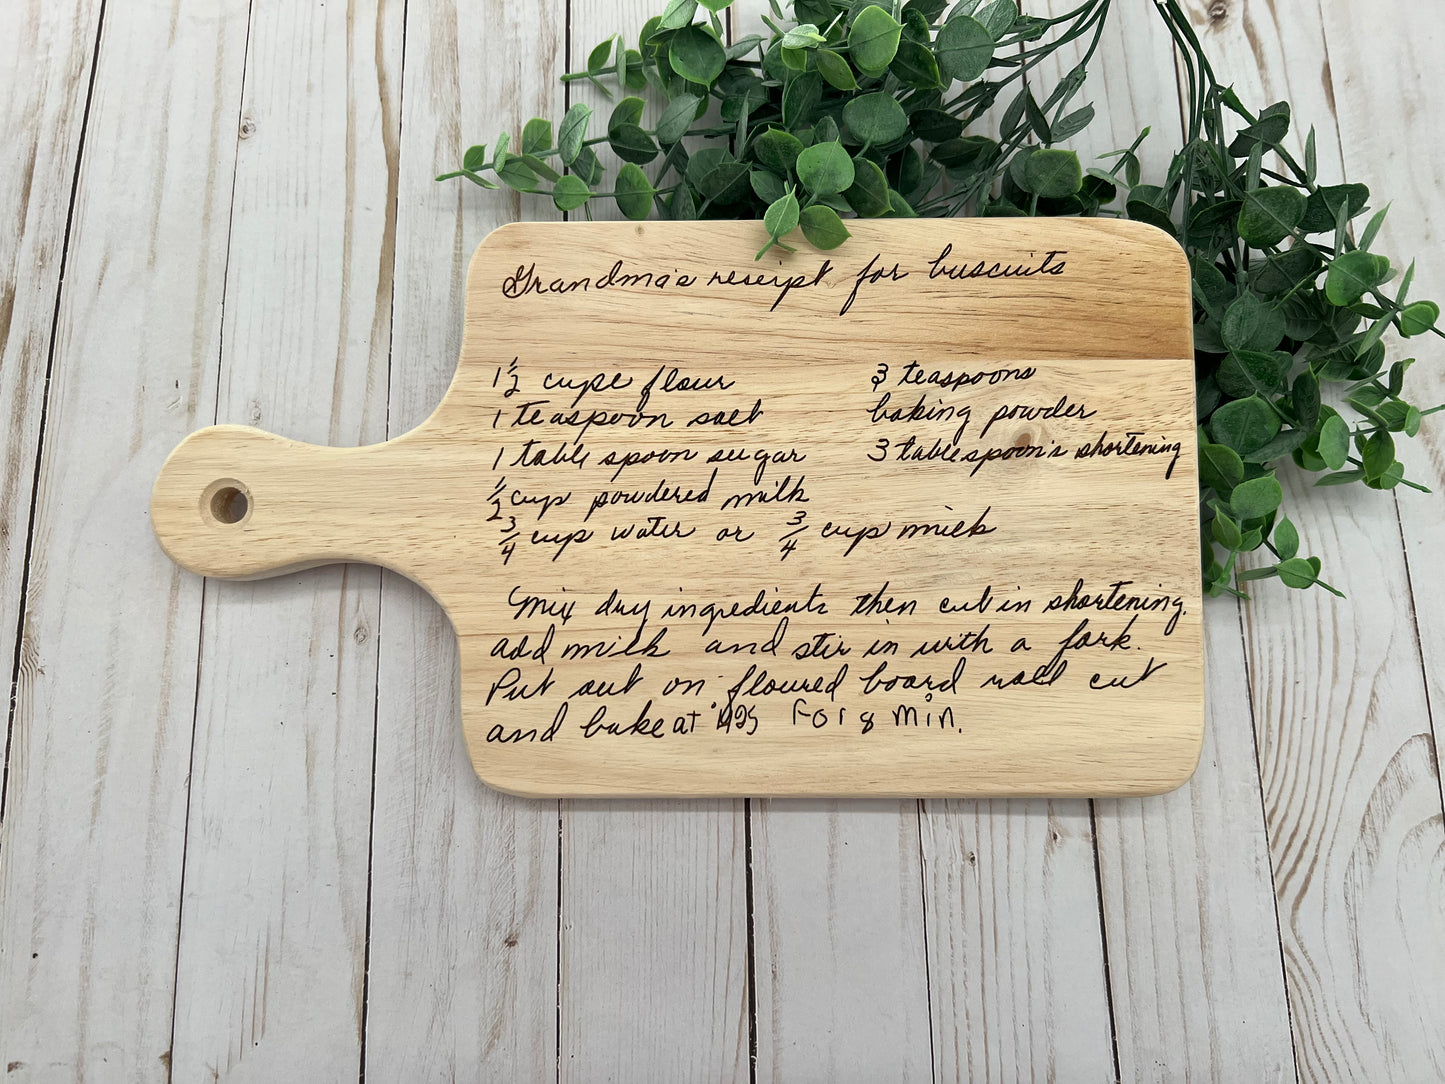 Grandma's reseipt for buscuits
1 1/2 cups flour
1 teaspoon salt
1 table spoon sugar
1/2 cup powdered milk
3/4 cup water or 3/4 cup milk
3 teaspoons
baking powder
3 tablespoon's shortening
Mix dry ingredients then cut in shortening.
add milk and stir in with a fork.
Put out on floured board roll cut
and bake at °425 For 8 min.